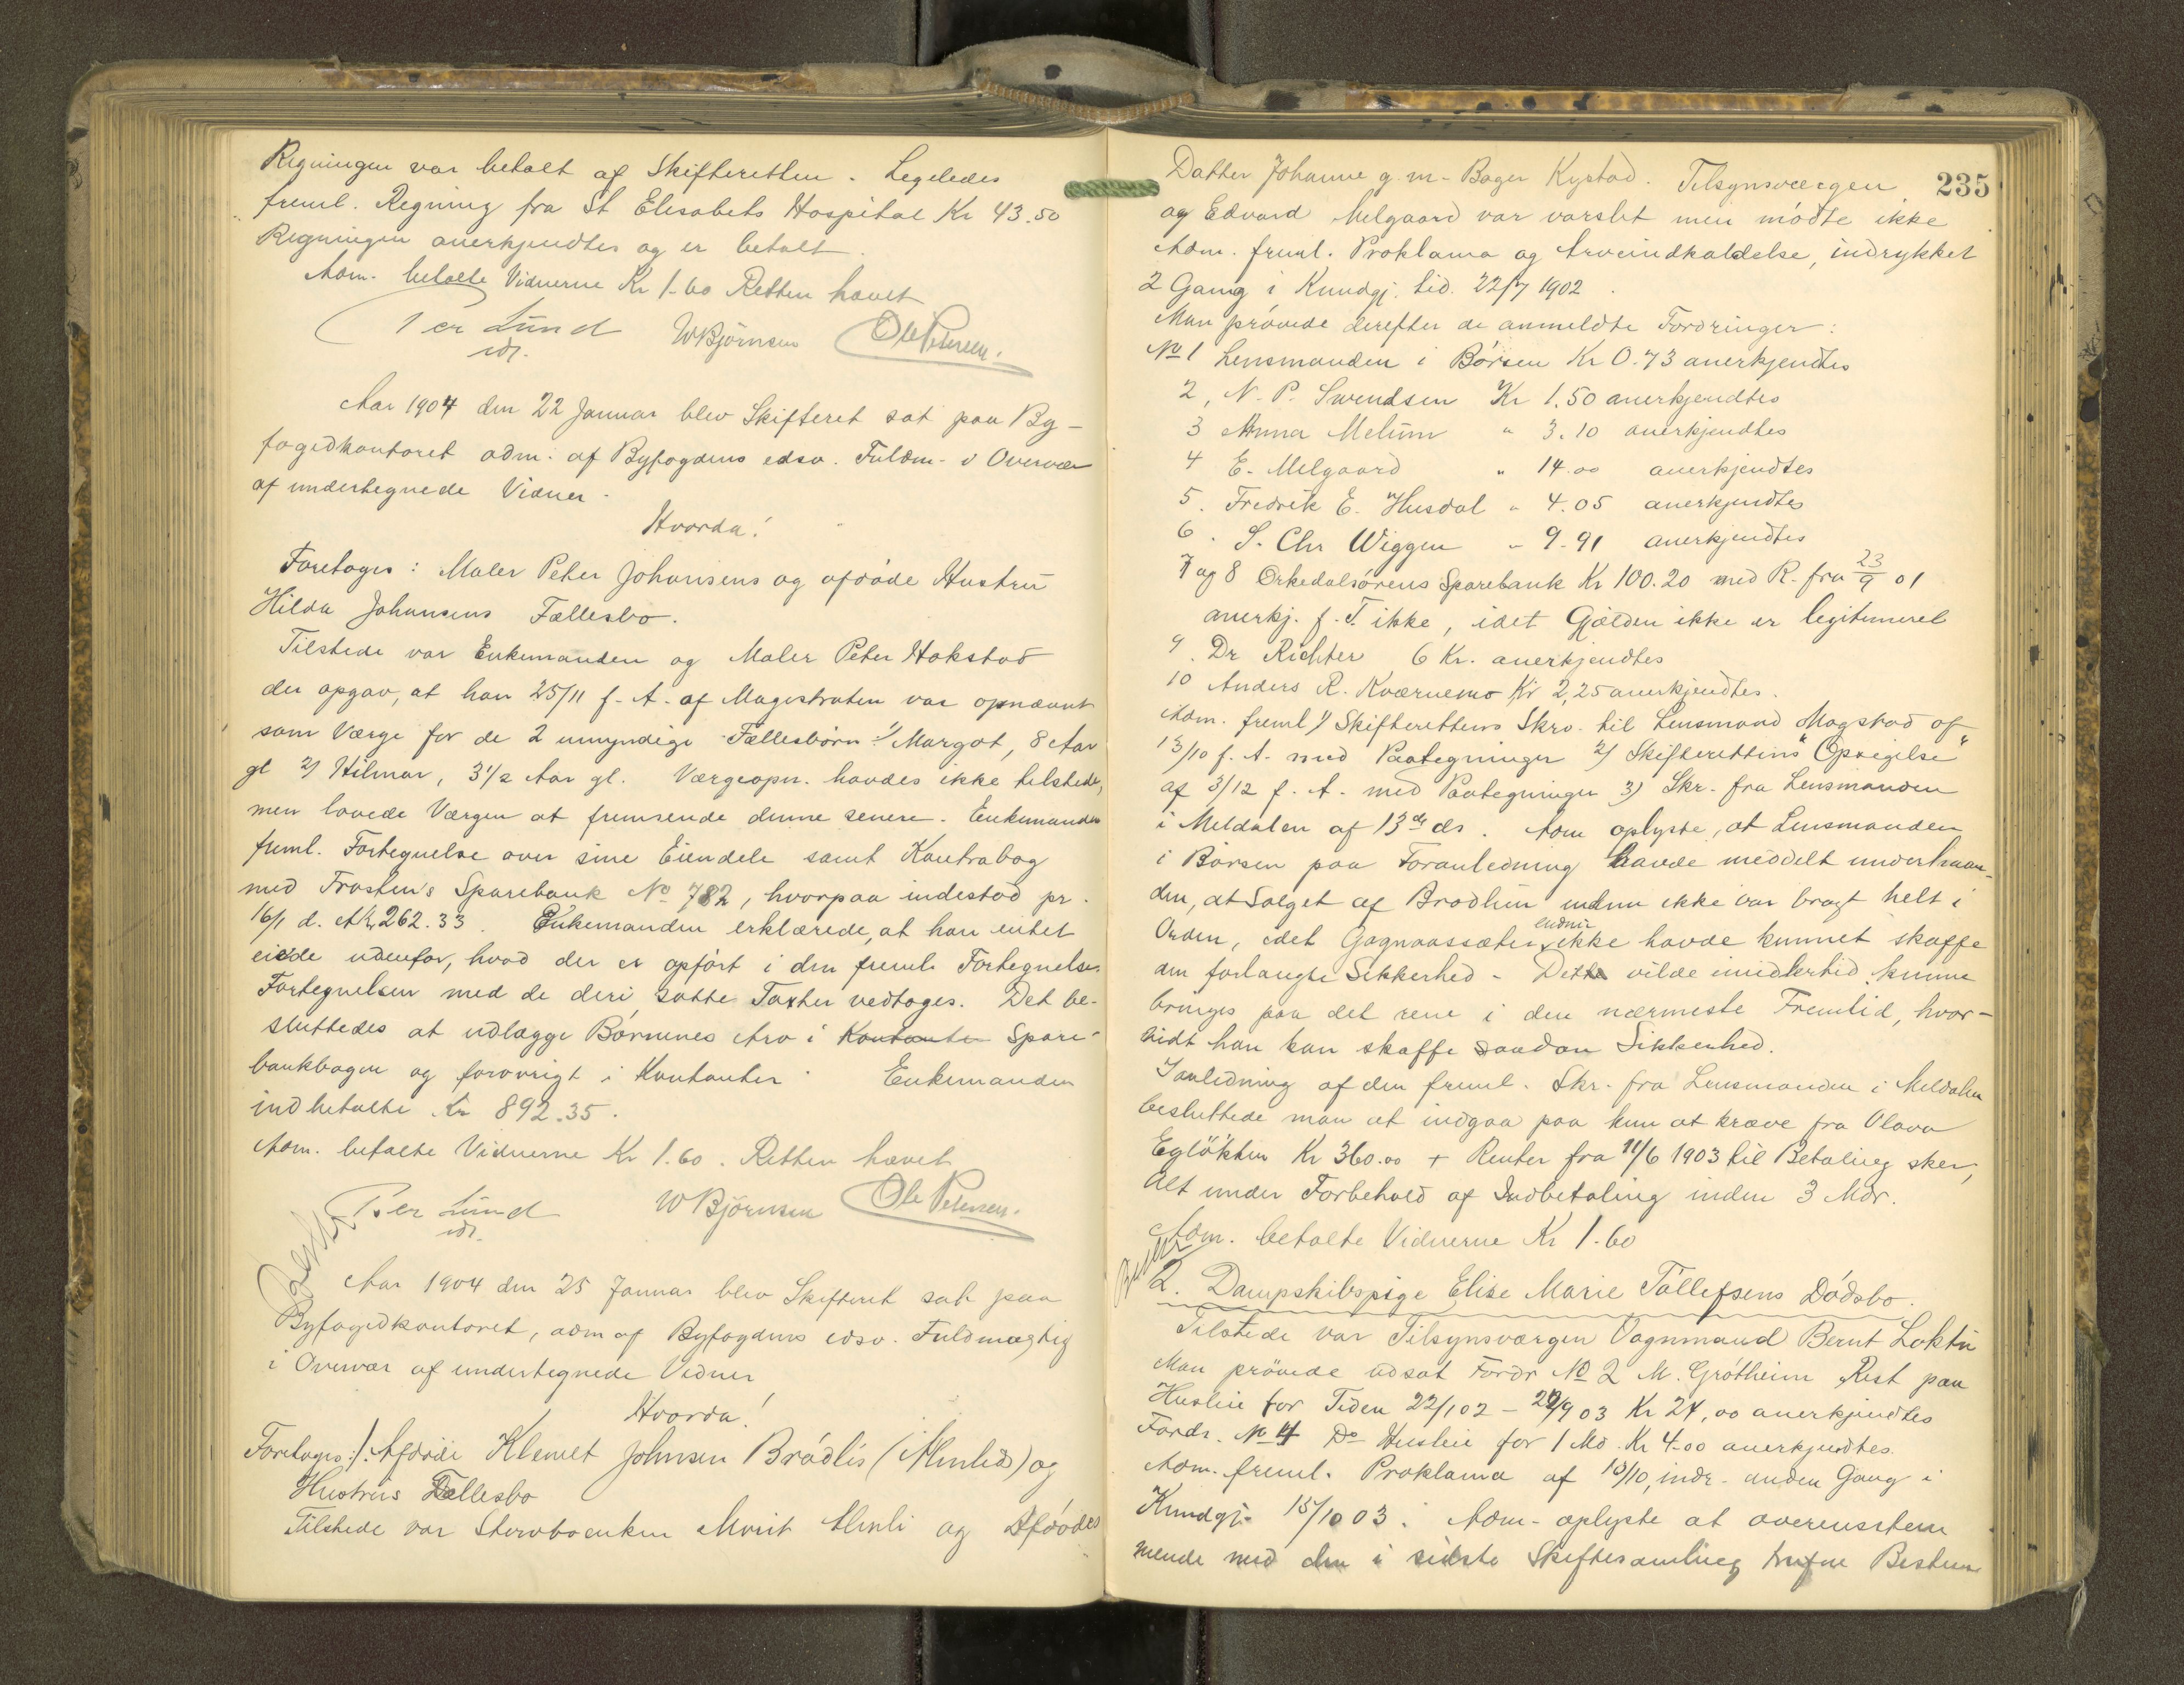 Regningen var betalt af Skifteretten. Legeledes
freml. Regning fra St Elisabets Hospital Kr 43.50
Regningen anerkjendtes og er betalt.
Adm. betalte Vidnerne Kr 1.60 Retten hævet
Per Lund WBjörnsen Ole Petersen.
cst.
Aar 1904 den 22 Januar blev Skifteret sat paa By-
fogedkontoret adm. af Byfogdens edsv. Fuldm. i Overvær
af undertegnede Vidner.
Hvorda!
Foretoges: Maler Peter Johansens og afdøde Hustru
Hilda Johansens Fællesbo.
Tilstede var Enkemanden og Maler Peter Hokstad
der opgav, at han 25/11 f. A. af Magistraten var opnævnt
som Værge for de 2 umyndige Fællesbörn: 1/ Margot, 8 Aar
gl 2/ Hilmar, 3 1/2 Aar gl. Værgeopn. havdes ikke tilstede,
men lovede Værgen at fremsende denne senere. Enkemanden
freml. Fortegnelse over sine Eiendele samt Kontrabog
med Frosten's Sparebank No 782, hvorpaa indestod pr.
16/1 d. A. Kr 262.33. Enkemanden erklærede, at han intet
eiede udenfor, hvad der er opfört i den freml. Fortegnelse.
Fortegnelsen med de deri satte Taxter vedtoges. Det be-
sluttedes at udlægge Börnenes Arv i Kontanter Spare-
bankbogen og forövrigt i Kontanter. Enkemanden
indbetalte Kr 892.35.
Adm. betalte Vidnerne Kr 1.60. Retten hævet
Per Lund WBjörnsen Ole Petersen.
cst.
Aar 1904 den 25 Januar blev Skifteret sat paa
Byfogedkontoret, adm af Byfogdens edsv. Fuldmægtig
i Overvær af undertegnede Vidner
Hvorda!
Foretoges: 1. Afdøde Klemet Johnsen Brødlis (Almlid) og
Hustrus Fællesbo
Tilstede var Stervboenken Marit Almli og Afdødes
235
Datter Johanne g. m. Bager Kystad. Tilsynsværgen
og Edvard Melgaard var varslet men mödte ikke
Adm. freml. Proklama og Arveindkaldelse, indrykket
2 Gang i Kundgj. tid. 22/7 1902.
Man prövede derefter de anmeldte Fordringer:
No 1 Lensmanden i Börsen Kr 0.73 anerkjendtes
2, N. P. Svendsen Kr 1.50 anerkjendtes
3 Anna Melum " 3.10 anerkjendtes
4 E. Melgaard " 14.00 anerkjendtes
5. Fredrik E. Husdal " 4.05 anerkjendtes
6. S. Chr Wiggen " 9.91 anerkjendtes
7 og 8 Orkedalsörens Sparebank Kr 100.20 med R. fra 23/9 01
anerkj. f. T. ikke, idet Gjælden ikke er legitimeret
9. Dr Richter 6 Kr. anerkjendtes
10 Anders R. Kværnemo Kr 2,25 anerkjendtes.
Adm. freml 1/ Skifterettens Skrv. til Lensmand Mogstad af
13/10 f. A. med Paategninger 2/ Skifterettens "Opsigelse"
af 3/12 f. A. med Paategninger 3) Skr. fra Lensmanden
i Meldalen af 13de ds. Adm oplyste, at Lensmanden
i Börsen paa Foranledning havde meddelt underhaan-
den, at Salget af Brødlien endnu ikke var bragt helt i
Orden, idet Gagnaassæter endnu ikke havde kunnet skaffe
den forlangte Sikkerhed. Dette vilde imidlertid kunne
bringes paa det rene i den nærmeste Fremtid, hvor-
vidt han kan skaffe saadan Sikkerhed.
I Anledning af den freml. Skr. fra Lensmanden i Meldalen
besluttede man at indgaa paa kun at kræve fra Olava
Eglökken Kr 360.00 + Renter fra 11/6 1903 til Betaling sker,
Alt under Forbehold af Indbetaling inden 3 Mdr.
Adm. betalte Vidnerne Kr 1.60
2. Dampskibspige Elise Marie Tollefsens Dödsbo.
Tilstede var Tilsynsværgen Vognmand Bernt Loktu
Man prövede udsat Fordr No 2 M. Grötheim Rest paa
Husleie for Tiden 22/1 02 - 22/9 03 Kr 24,00 anerkjendtes
Fordr. No 4 Do Husleie for 1 Md. Kr 4.00 anerkjendtes.
Adm. freml. Proklama af 13/10, indr. anden Gang i
Kundgj. 15/10 03. Adm. oplyste at overensstem
mende med den i sidste Skiftesamling trufne Bestem